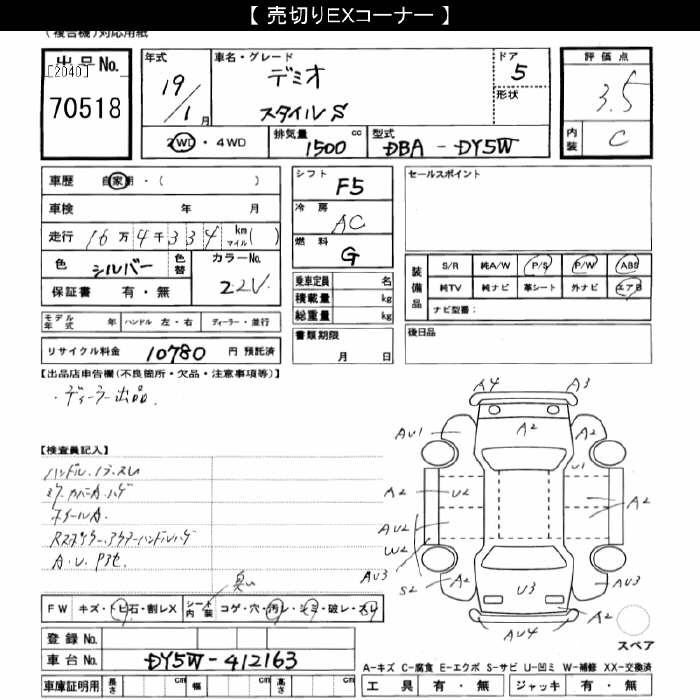 【 売切りEXコーナー 】
(複合機)対応用紙
出品No.
[2040]
70518
年式
19/1月
車名・グレード
デミオ
スタイルS
ドア
5
形状
評価点
3.5
内装
C
2WD・4WD
排気量
1500 cc
型式
DBA - DY5W
車歴 自家用・( )
車検 年 月
走行 16万4千334 km マイル( )
色 シルバー 色替
カラーNo.
22V
保証書 有・無
モデル年式 年 ハンドル 左・右 ディーラー・並行
リサイクル料金 10780 円 預託済
シフト
F5
冷房
AC
燃料
G
乗車定員 名
積載量 kg
総重量 kg
書類期限
月 日
セールスポイント
装備品
S/R 純A/W P/S P/W ABS
純TV 純ナビ 革シート 外ナビ エアB
ナビ型番:
後日品
【出品店申告欄(不良箇所・欠品・注意事項等)】
・ディーラー出品.
【検査員記入】
ハンドル.ノブ.スレ
ホイールA.
A.U.P他
臭い
FW キズ・トビ石・割レX シート内装 コゲ・穴・汚レ・シミ・破レ・スレ
登録No.
車台No. DY5W-412163
車庫証明用 長さ cm 幅 cm 高さ cm
A4 A3
AU1 A2 A2
A2 U2 U1 A2
AU2
W2
AU3
S2 A2 U3 AU3
A2
AU4
スペア
A-キズ C-腐食 E-エクボ S-サビ U-凹ミ W-補修 XX-交換済
工具 有・無 ジャッキ 有・無